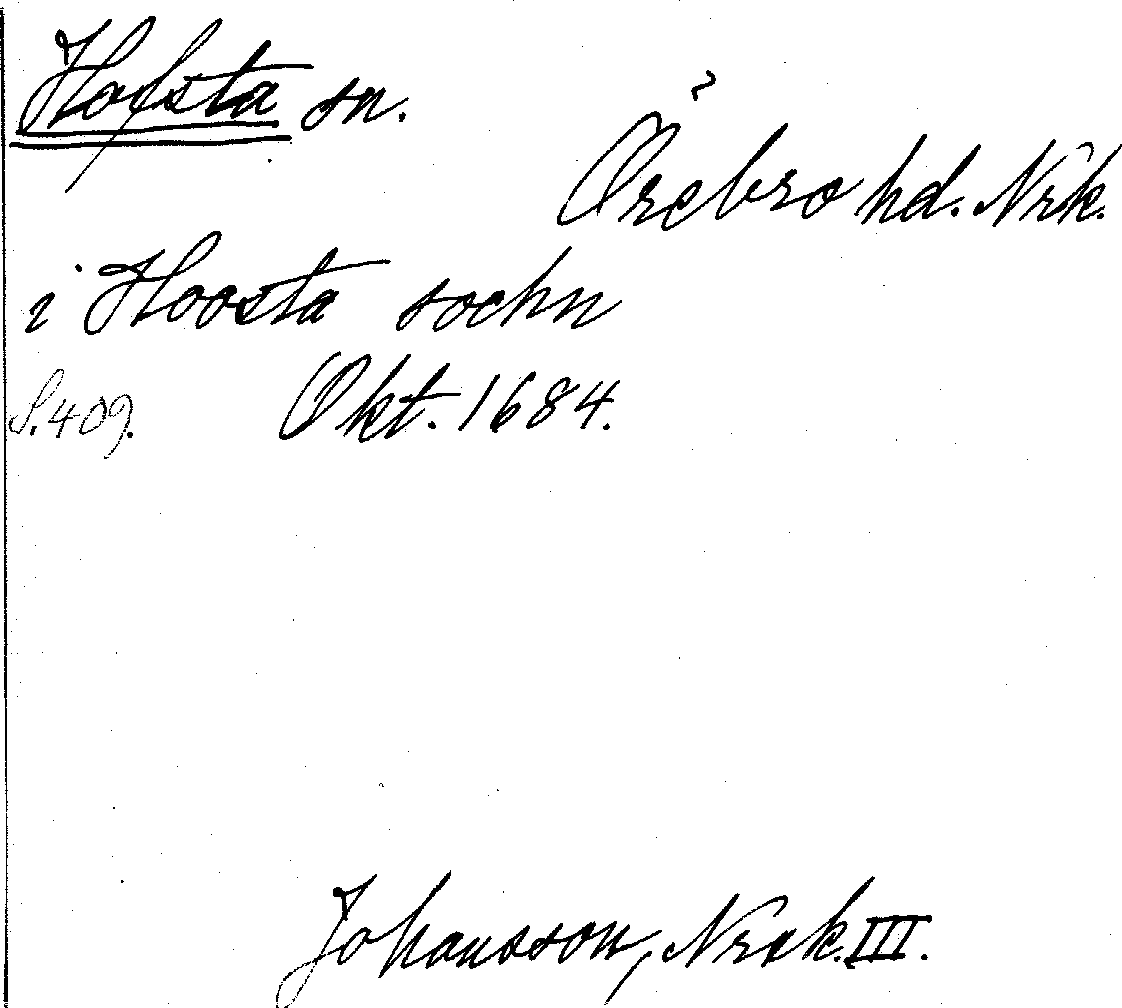 Hofsta sn.
Örebro hd. Nrk.
i Hoosta sochn
S. 409. Okt. 1684.
Johansson, Närk. III.